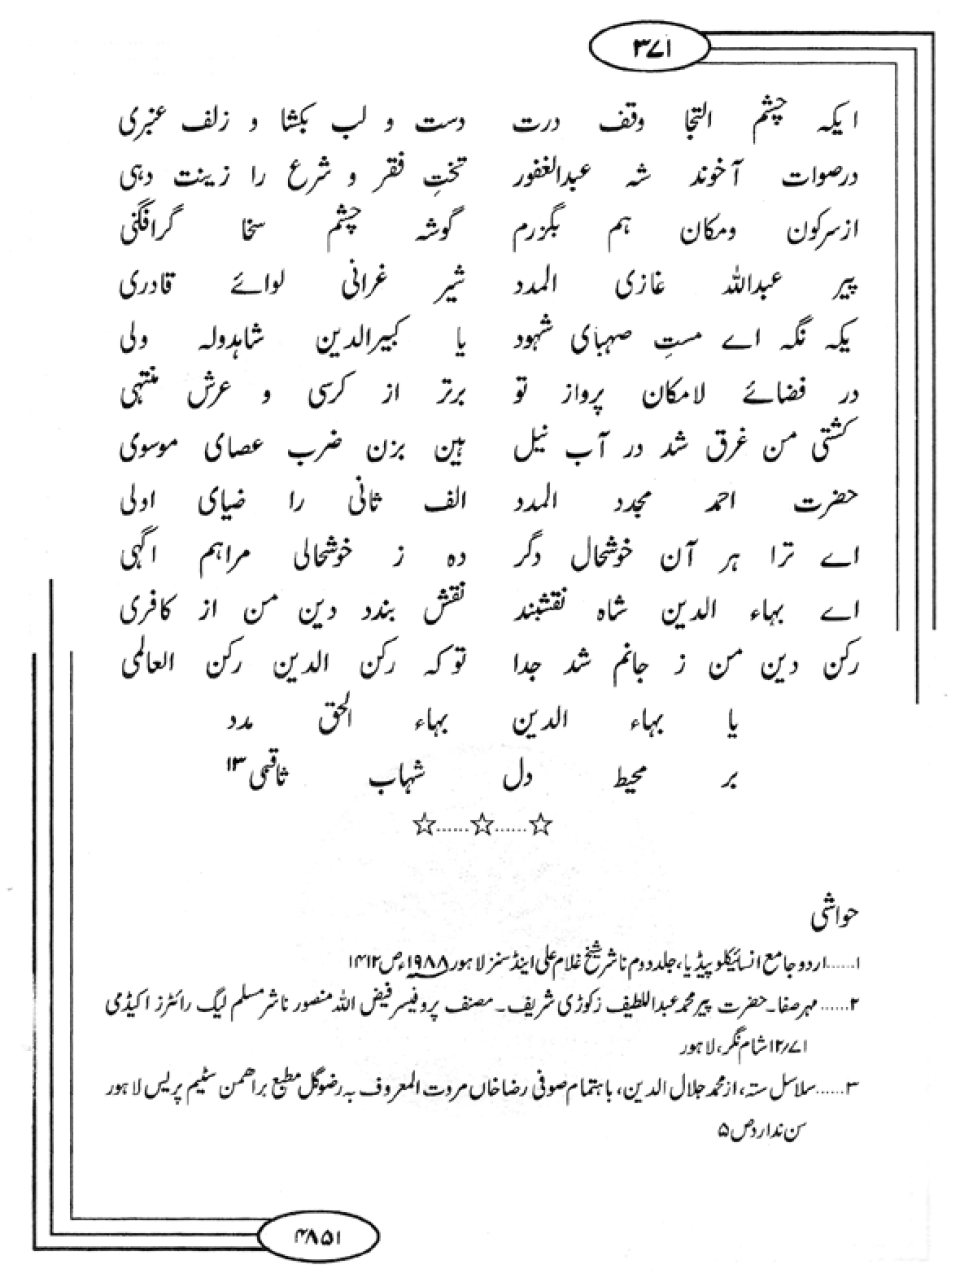 ۳۷۱
ایکہ چشم التجا وقف درت دست و لب بکشا و زلف عنبری
درصوات آخوند شہ عبدالغفور تختِ فقر و شرع را زینت دہی
ازسرکون ومکان ہم بگزرم گوشہ چشم سخا گرافگنی
پیر عبداللہ غازی المدد شیر غرانی لوائے قادری
یکہ نگہ اے مستِ صہبای شہود یا کبیرالدین شاہدولہ ولی
در فضائے لامکان پرواز تو برتر از کرسی و عرش منتہی
کشتی من غرق شد در آب نیل ہین بزن ضرب عصای موسوی
حضرت احمد مجدد المدد الف ثانی را ضیای اولی
اے ترا ہر آن خوشحال دگر دہ ز خوشحالی مراہم اگہی
اے بہاء الدین شاہ نقشبند نقش بندد دین من از کافری
رکن دین من ز جانم شد جدا توکہ رکن الدین رکن العالمی
یا بہاء الدین بہاء الحق مدد
بر محیط دل شہاب ثاقبی ۱۳
☆......☆......☆
حواشی
۱......اردو جامع انسائیکلوپیڈیا، جلد دوم ناشر شیخ غلام علی اینڈ سنز لاہور ۱۹۸۸ء ص ۱۴۱۲
۲......مہر صفا۔ حضرت پیر محمد عبداللطیف زکوڑی شریف۔ مصنف پروفیسر فیض اللہ منصور ناشر مسلم لیگ رائٹرز اکیڈمی
۱۲/۷۱ شام نگر، لاہور
۳......سلاسل ستہ، از محمد جلال الدین، باہتمام صوفی رضا خاں مروت المعروف بہ رضو گل مطبع براھمن سٹیم پریس لاہور
سن ندارد ص ۵
۴۸۵۱